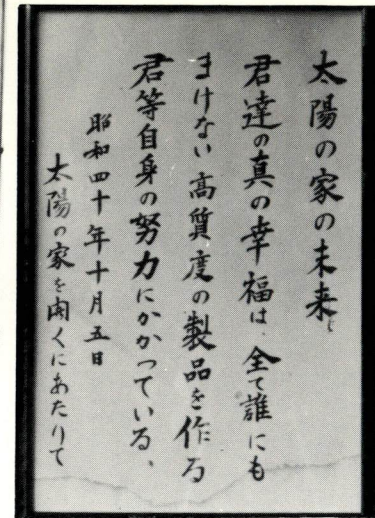 太陽の家の未来と
君達の真の幸福は、全て誰にも
まけない高質度の製品を作る
君等自身の努力にかかっている、
昭和四十年十月五日
太陽の家を開くにあたりて